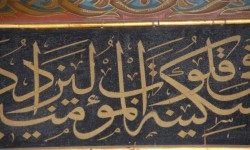 سكينة في قلوب المؤمنين ليزداد